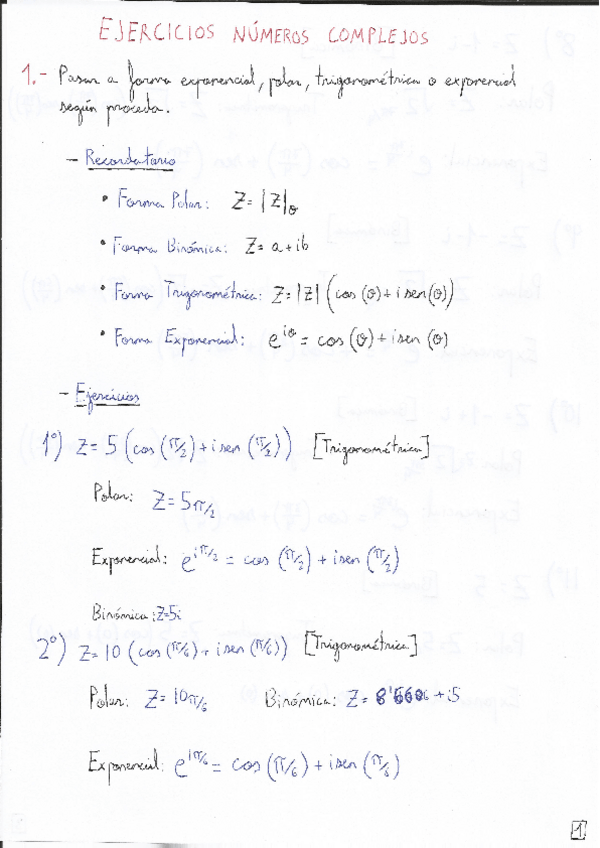 EJERCICIOS NÚMEROS COMPLEJOS
1.- Pasar a forma exponencial, polar, trigonométrica o exponencial
según proceda.
- Recordatorio
• Forma Polar: Z=|Z|θ
• Forma Binómica: Z=a+ib
• Forma Trigonométrica: Z=|Z|(cos(θ)+isen(θ))
• Forma Exponencial: e^iθ = cos(θ)+isen(θ)
- Ejercicios
1º) Z=5(cos(π/2)+isen(π/2)) [Trigonométrica]
Polar: Z=5π/2
Exponencial: e^iπ/2 = cos(π/2)+isen(π/2)
Binómica: Z=5i
2º) Z=10(cos(π/6)+isen(π/6)) [Trigonométrica]
Polar: Z=10π/6 Binómica: Z= +i5
Exponencial: e^iπ/6 = cos(π/6)+isen(π/6)
1